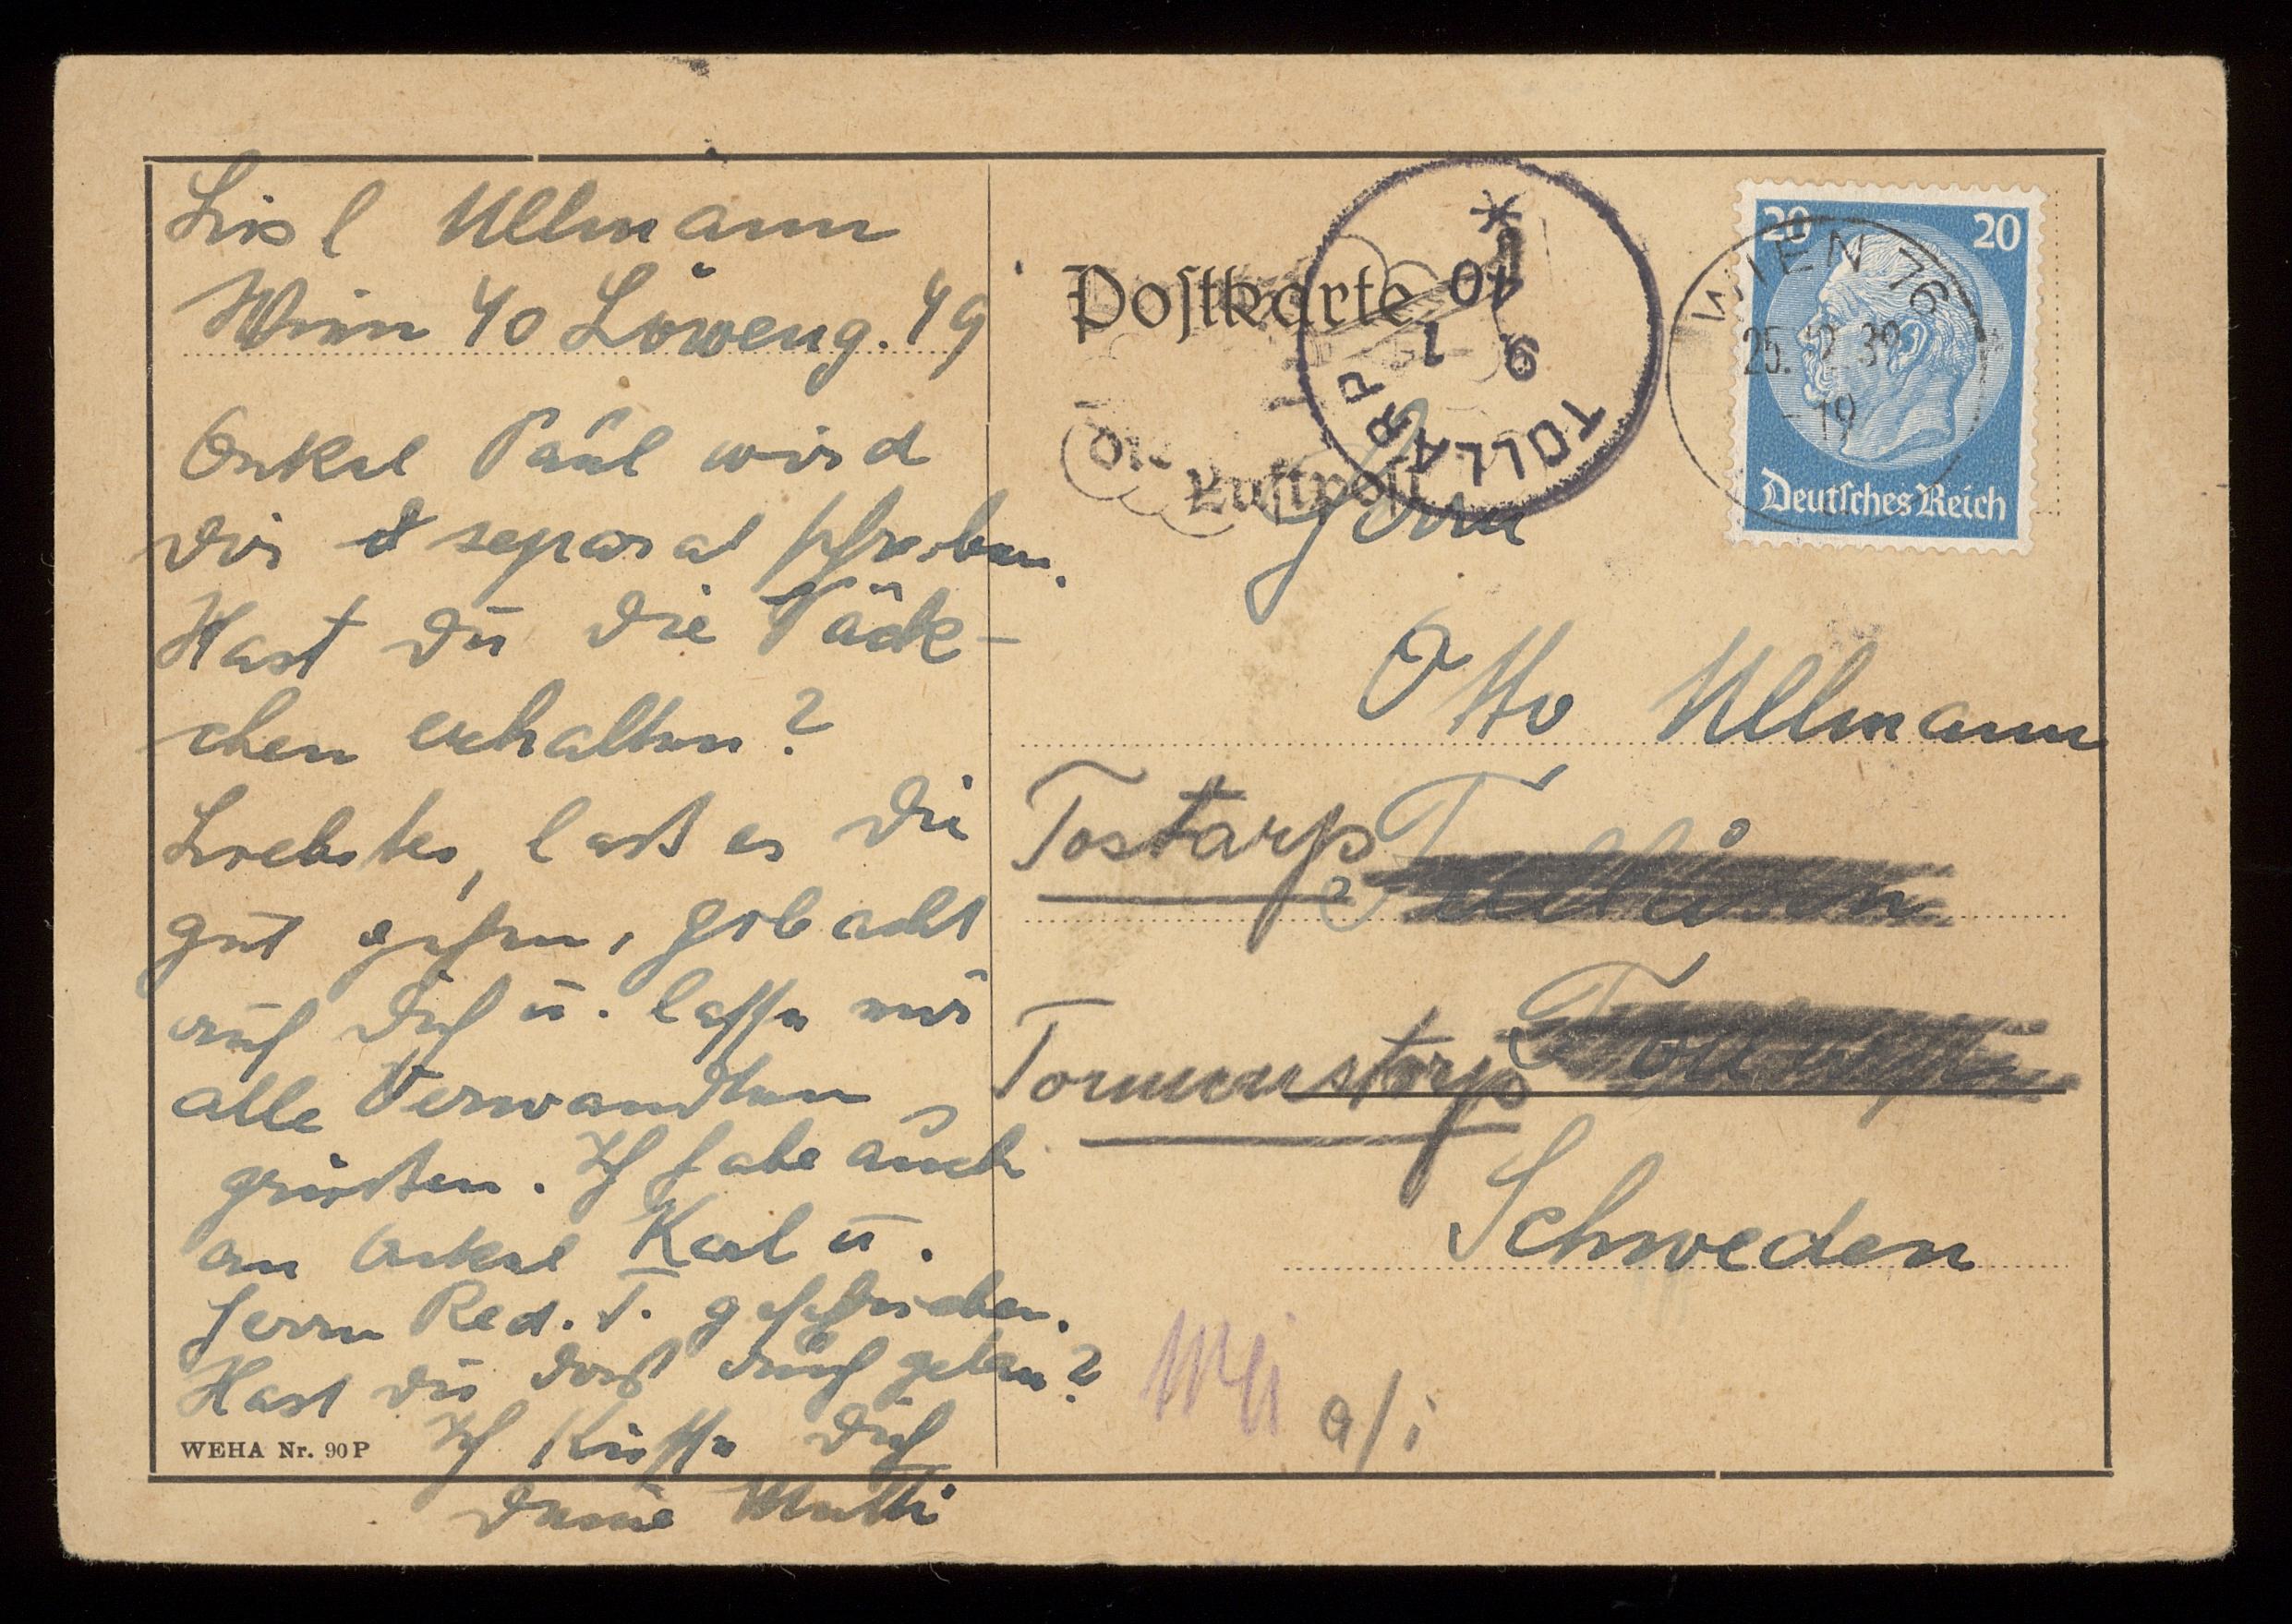 Lisl Ullmann
Wien 40 Löweng. 49
Onkel Paul wird
dir separat schreiben.
Hast du die Päck-
chen erhalten?
Liebster, laß es dir
gut gehen, gib acht
auf dich u. lasse mir
alle Verwandten
grüßen. Ich habe auch
an Onkel Karl u.
Herrn Red. T. geschrieben.
Hast du das auch getan?
Ich küsse dich
deine Mutti
WEHA Nr. 90 P
Postkarte
die
Luftpost
TOLLARP
9 1 40
WIEN 76
25. 12. 39
-19
20 20
Deutsches Reich
Herrn
Otto Ullmann
Tostarp
Tormenstorp
Schweden
a/i